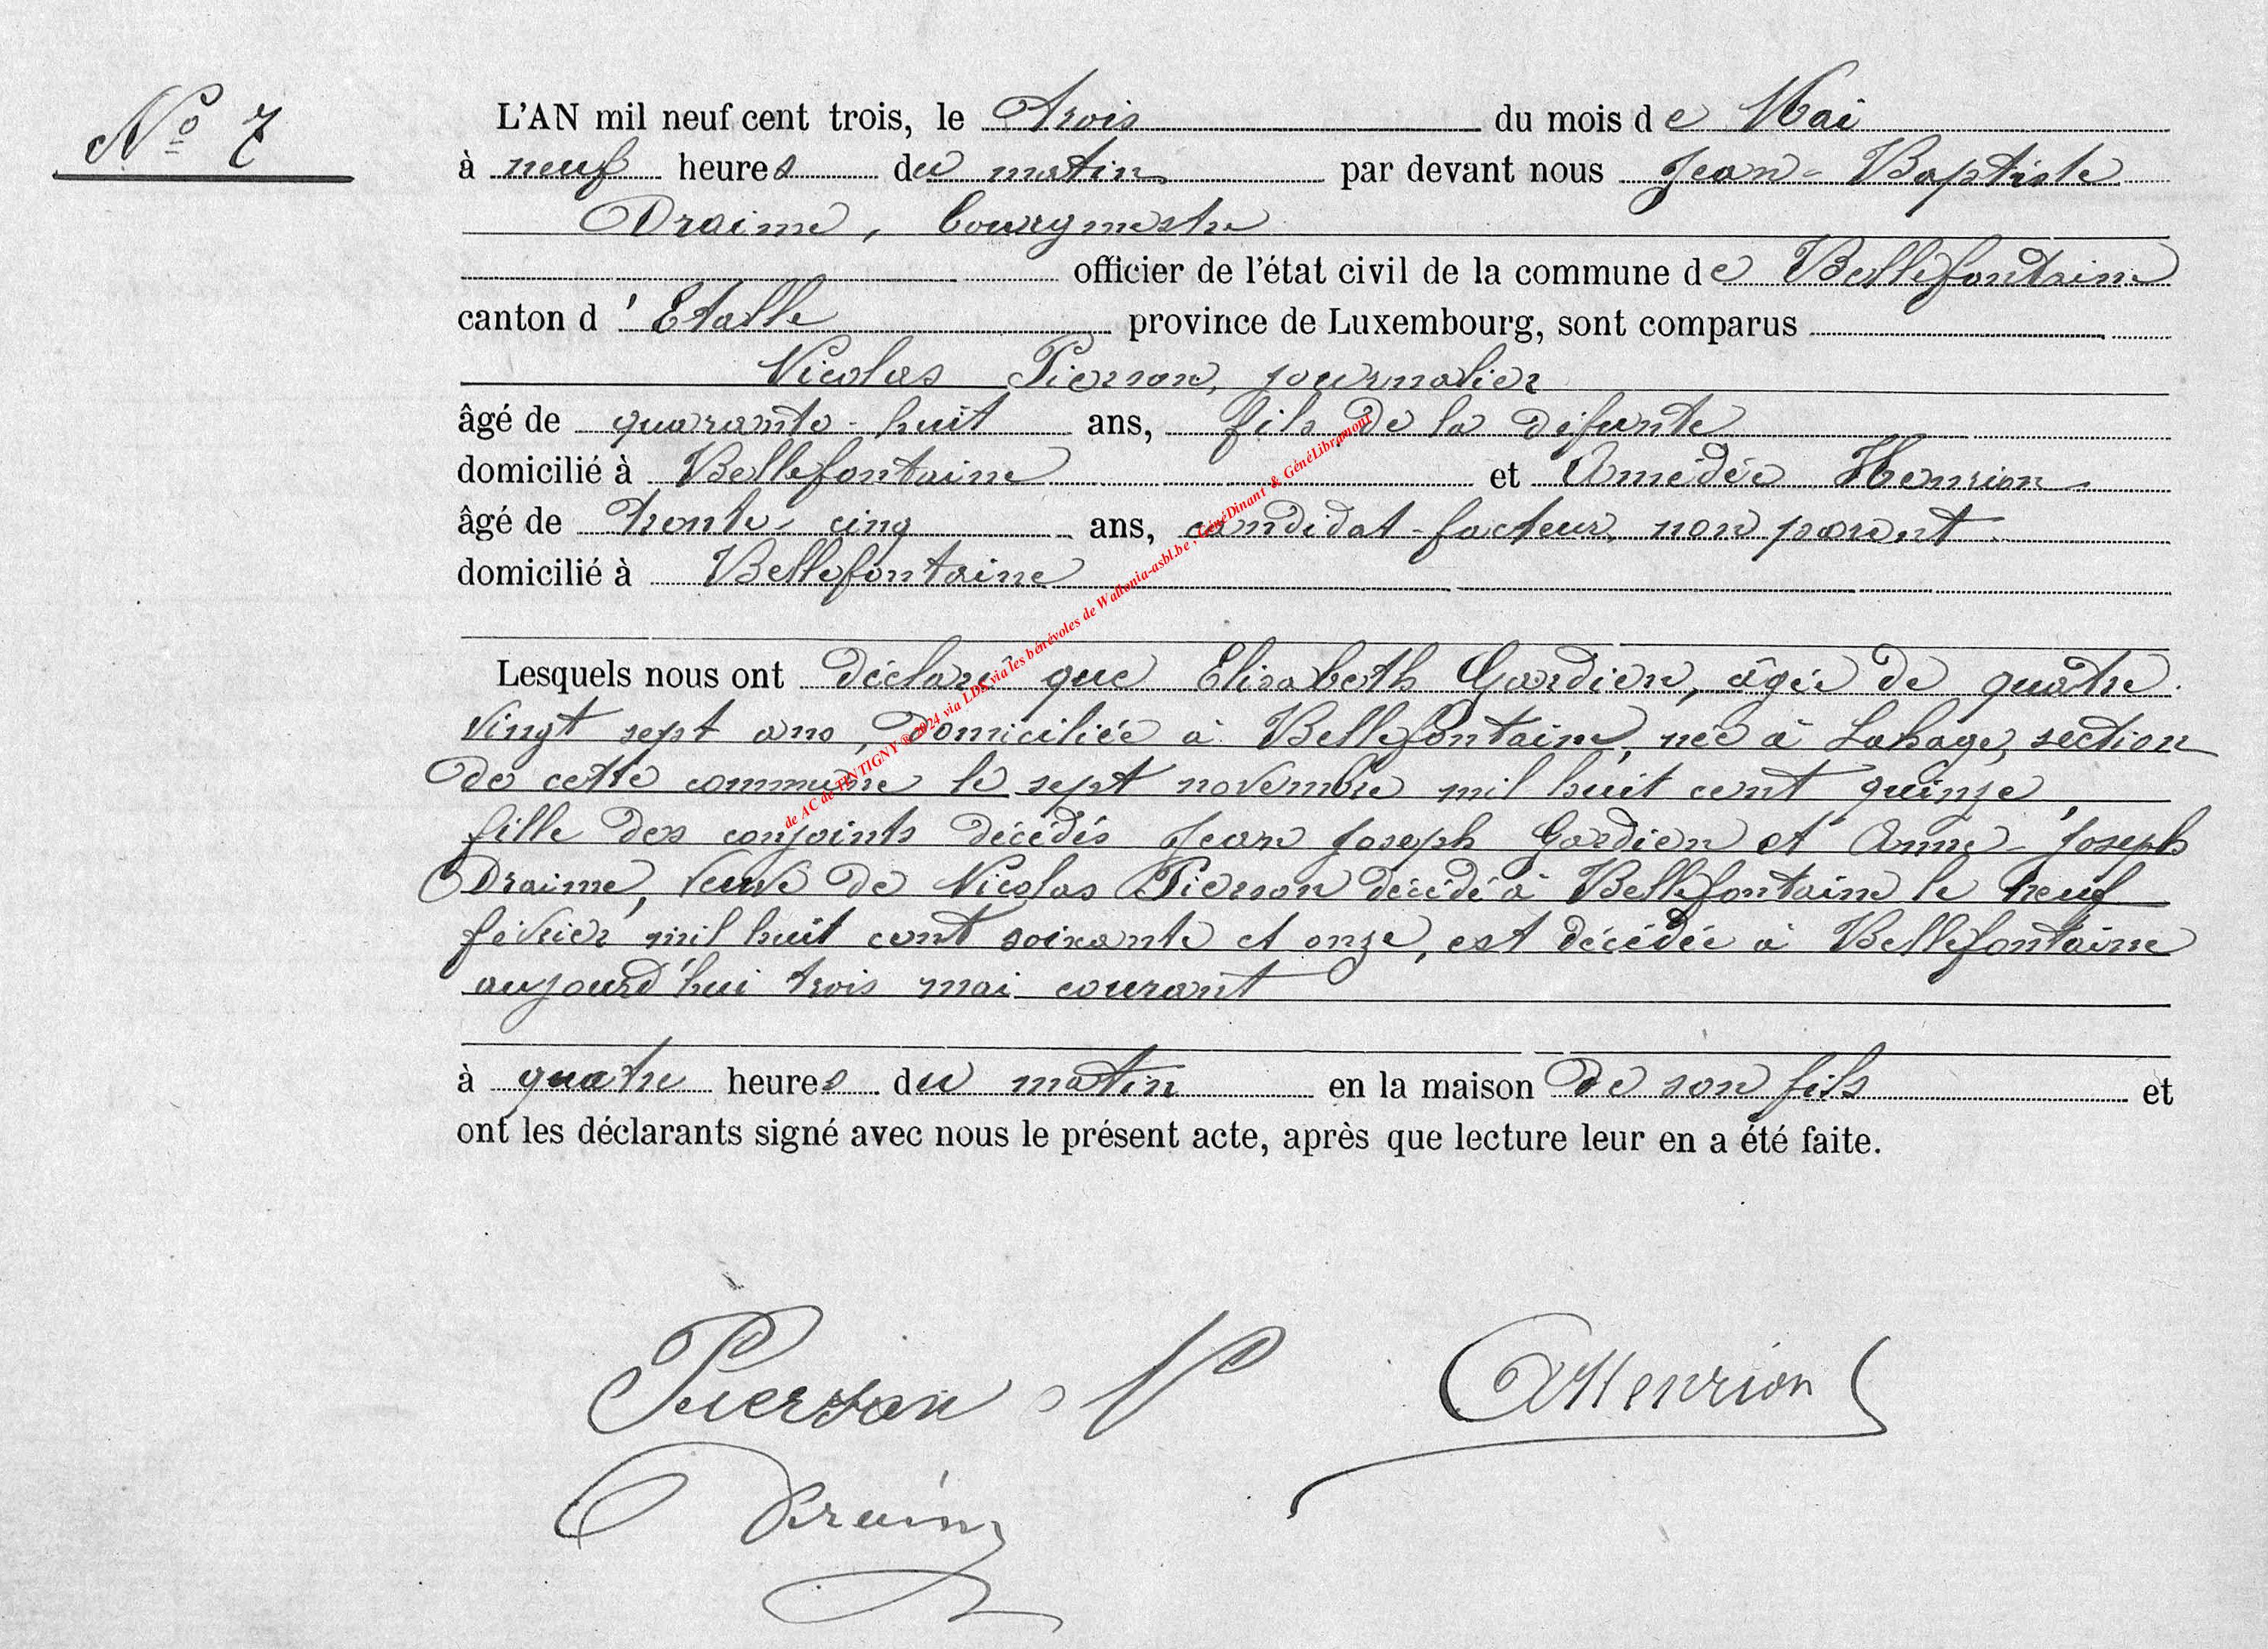 N° 7
L'AN mil neuf cent trois, le trois du mois de Mai
à neuf heures du matin par devant nous Jean-Baptiste
Draime, bourgmestre
officier de l'état civil de la commune de Bellefontaine
canton d'Etalle province de Luxembourg, sont comparus
Nicolas Pierson, journalier
âgé de quarante-huit ans, fils de la défunte
domicilié à Bellefontaine et Amédée Henrion
âgé de trente-cinq ans, candidat-facteur, non parent
domicilié à Bellefontaine
Lesquels nous ont déclaré que Elisabeth Gardien, âgée de quatre
vingt sept ans, domiciliée à Bellefontaine, née à Lahage, section
de cette commune le sept novembre mil huit cent quinze,
fille des conjoints décédés Jean Joseph Gardien et Anne-Joseph
Draime, veuve de Nicolas Pierson décédé à Bellefontaine le neuf
février mil huit cent soixante et onze, est décédée à Bellefontaine
aujourd'hui trois mai courant
à quatre heures du matin en la maison de son fils et
ont les déclarants signé avec nous le présent acte, après que lecture leur en a été faite.
Pierson N AHenrion
Draime
de AC de TINTIGNY ® 2024 via LDS via les bénévoles de Wallonia-asbl.be, GénéDinant & GénéLibramont